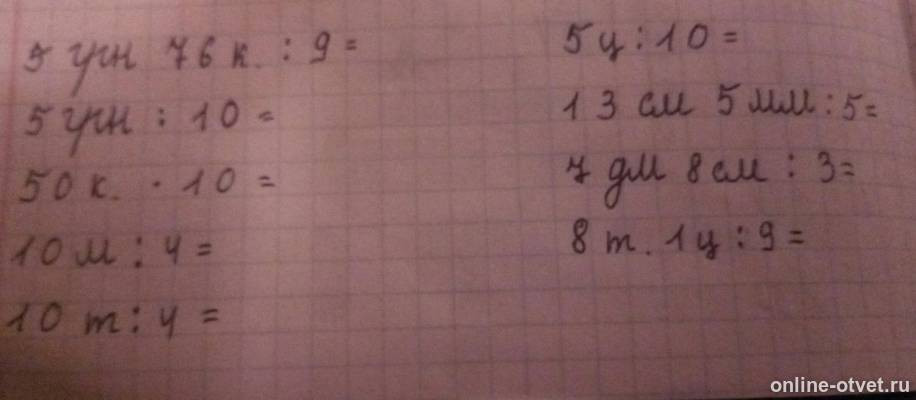 5 грн 76 к. : 9 =
5 грн : 10 =
50 к. · 10 =
10 м : 4 =
10 т : 4 =
5 ц : 10 =
13 см 5 мм : 5 =
7 дм 8 см : 3 =
8 т. 1 ц : 9 =
online-otvet.ru